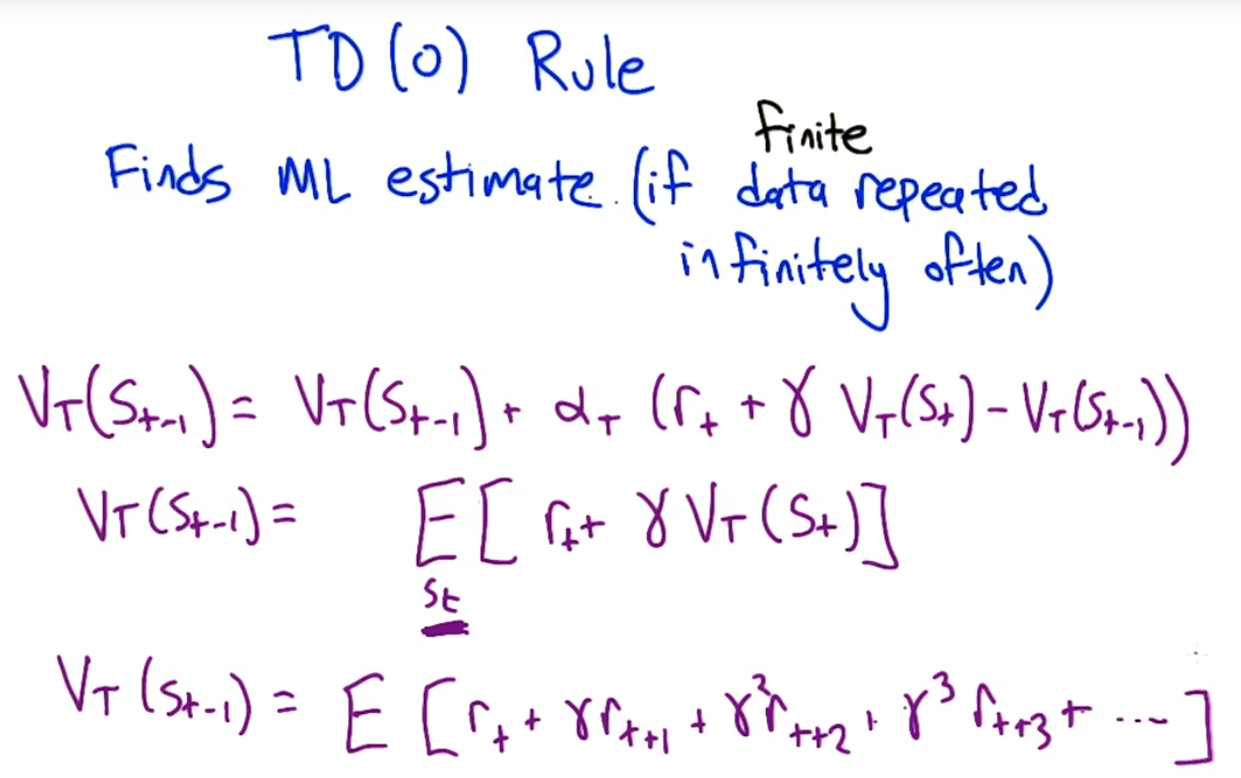 TD(0) Rule
finite
Finds ML estimate. (if data repeated
infinitely often)
V_T(S_{t-1}) = V_T(S_{t-1}) + α_T (r_t + γ V_T(S_t) - V_T(S_{t-1}))
V_T(S_{t-1}) = E_{S_t}[r_t + γ V_T(S_t)]
V_T(S_{t-1}) = E[r_t + γ r_{t+1} + γ² r_{t+2} + γ³ r_{t+3} + ...]